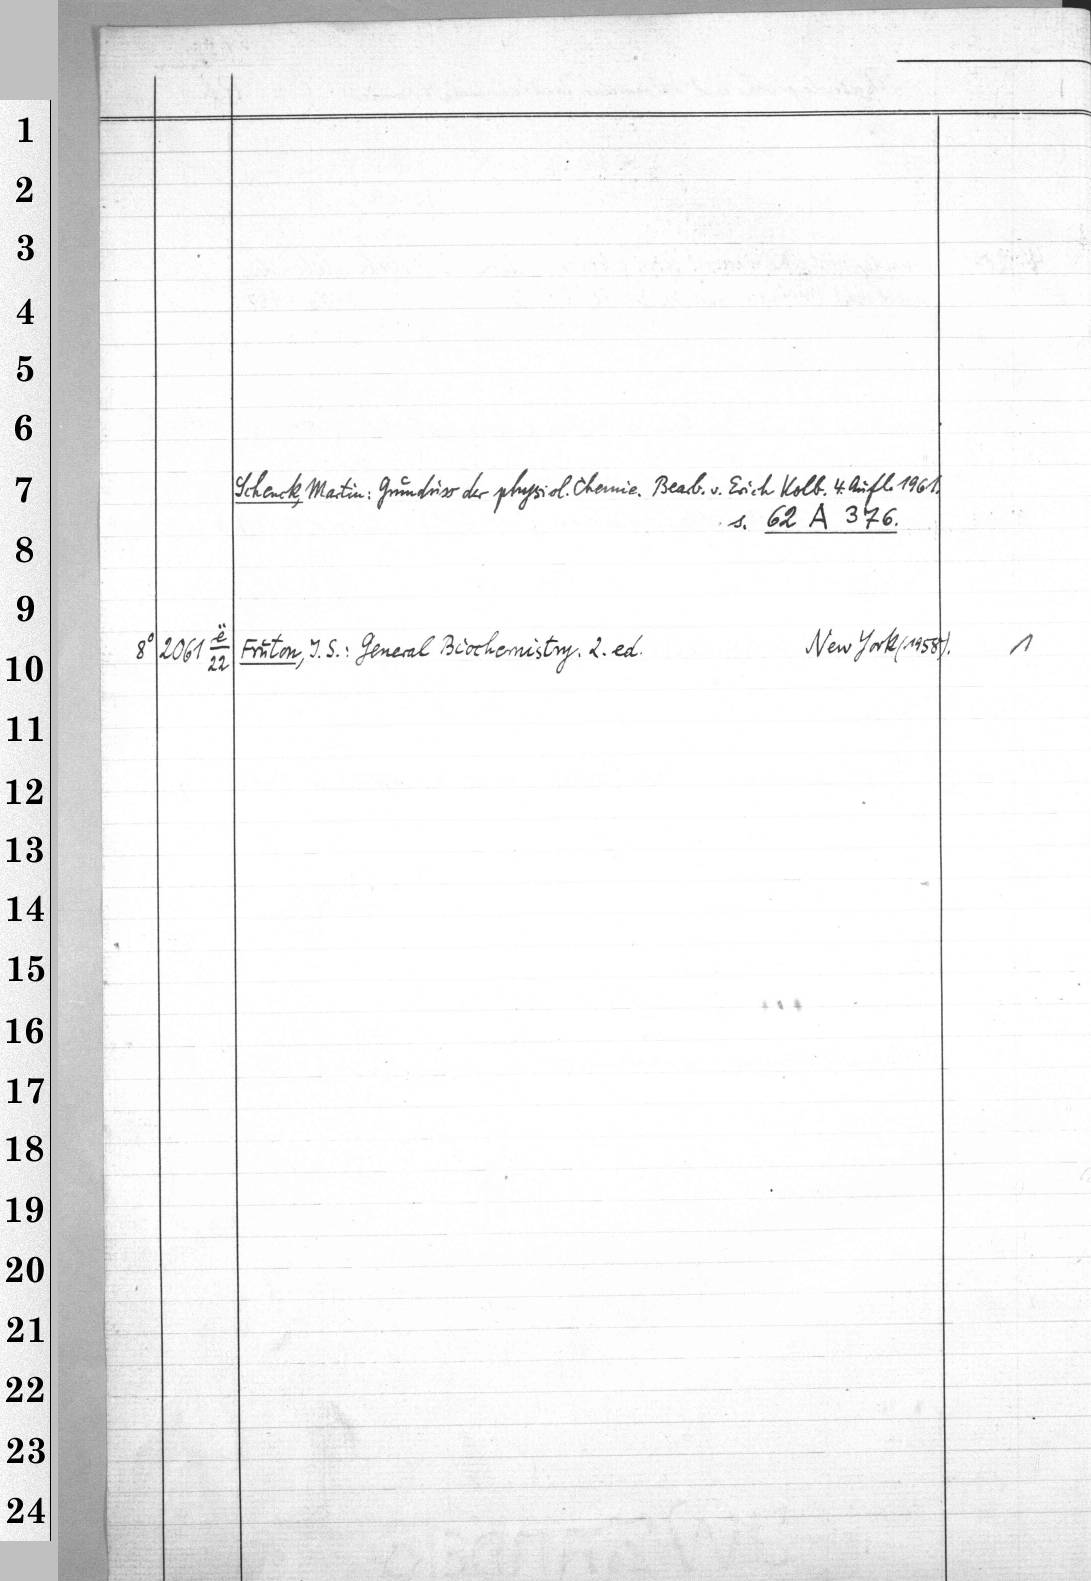 1
2
3
4
5
6
7
Schenck, Martin: Grundriss der physiol. Chemie. Bearb. v. Erich Kolb. 4. Aufl. 1961.
s. 62 A 376.
8
9
8° 2061 ë/22 Fruton, J. S.: General Biochemistry. 2. ed. New York (1958). 1
10
11
12
13
14
15
16
17
18
19
20
21
22
23
24